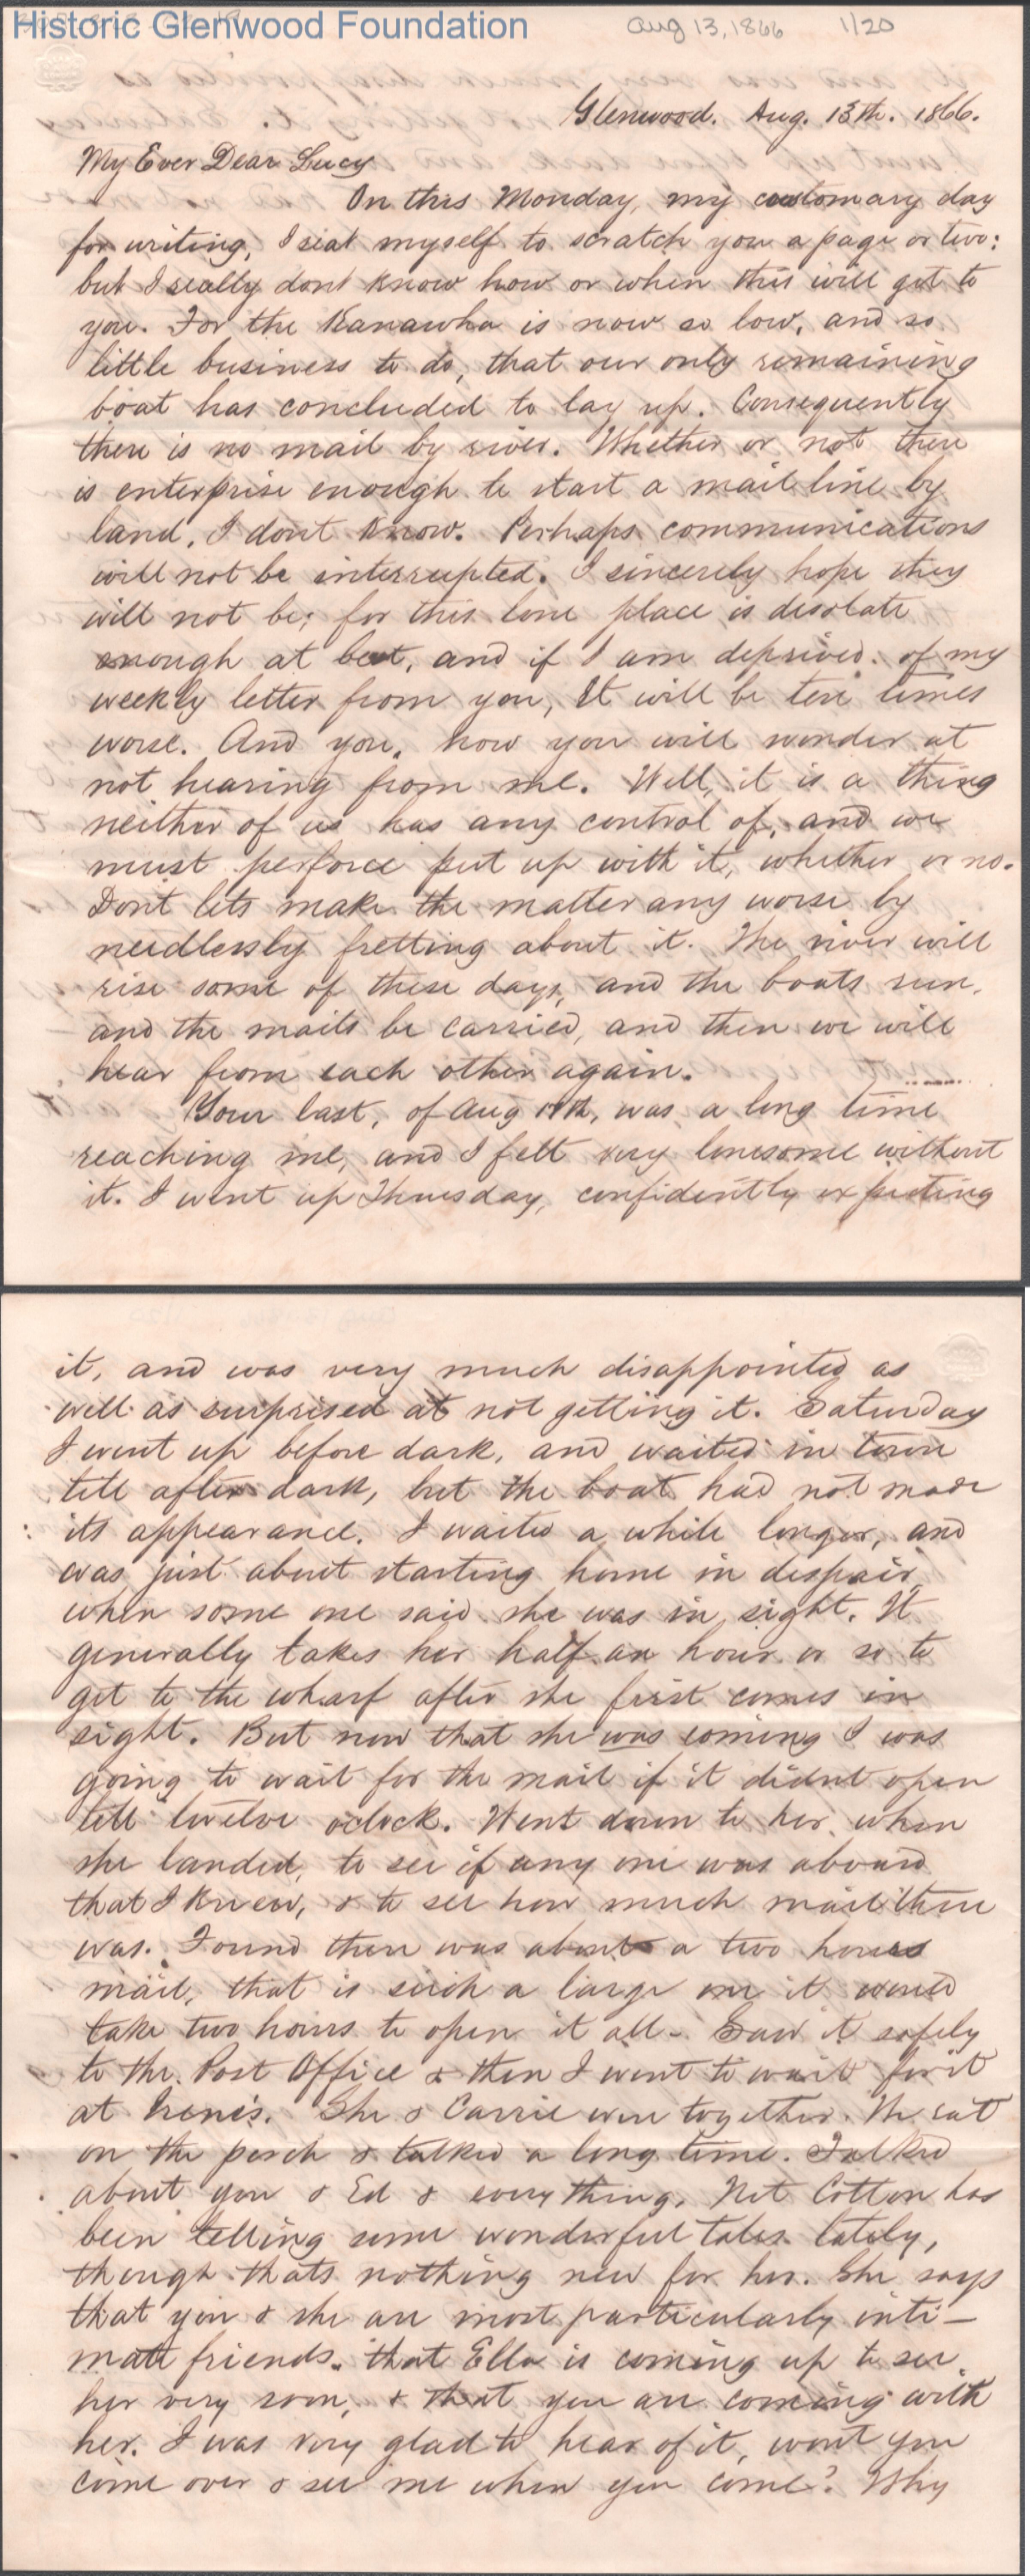 Historic Glenwood Foundation
Aug 13, 1866 1/20
Glenwood. Aug. 13th. 1866.
My Ever Dear Lucy
On this Monday, my customary day
for writing, I seat myself to scratch you a page or two:
but I really dont know how or when this will get to
you. For the Kanawha is now so low, and so
little business to do, that our only remaining
boat has concluded to lay up. Consequently
there is no mail by river. Whether or not there
is enterprise enough to start a mail line by
land, I dont know. Perhaps communications
will not be interrupted. I sincerely hope they
will not be; for this lone place is desolate
enough at best, and if I am deprived of my
weekly letter from you, It will be ten times
worse. And you, how you will wonder at
not hearing from me. Well, it is a thing
neither of us has any control of, and we
must perforce put up with it, whether or no.
Dont lets make the matter any worse by
needlessly fretting about it. The river will
rise some of these days, and the boats run,
and the mails be carried, and then we will
hear from each other again.
Your last, of Aug , was a long time
reaching me, and I felt very lonesome without
it. I went up Thursday, confidently expecting
it, and was very much disappointed as
well as surprised at not getting it. Saturday
I went up before dark, and waited in town
till after dark, but the boat had not made
its appearance. I waited a while longer, and
was just about starting home in despair
when some one said she was in sight. It
generally takes her half an hour or so to
get to the wharf after she first comes in
sight. But now that she was coming I was
going to wait for the mail if it didnt open
till twelve oclock. Went down to her when
she landed, to see if any one was aboard
that I knew, & to see how much mail there
was. Found there was about a two hours
mail, that is such a large one it would
take two hours to open it all. Saw it safely
to the Post Office & then I went to wait for it
at Irene's. She & Carrie were together. We sat
on the porch & talked a long time. Talked
about you & Ed & everything. Net Cotton has
been telling some wonderful tales lately,
though thats nothing new for her. She says
that you & she are most particularly inti-
mate friends. that Ella is coming up to see
her very soon, & that you are coming with
her. I was very glad to hear of it, wont you
come over & see me when you come? Why